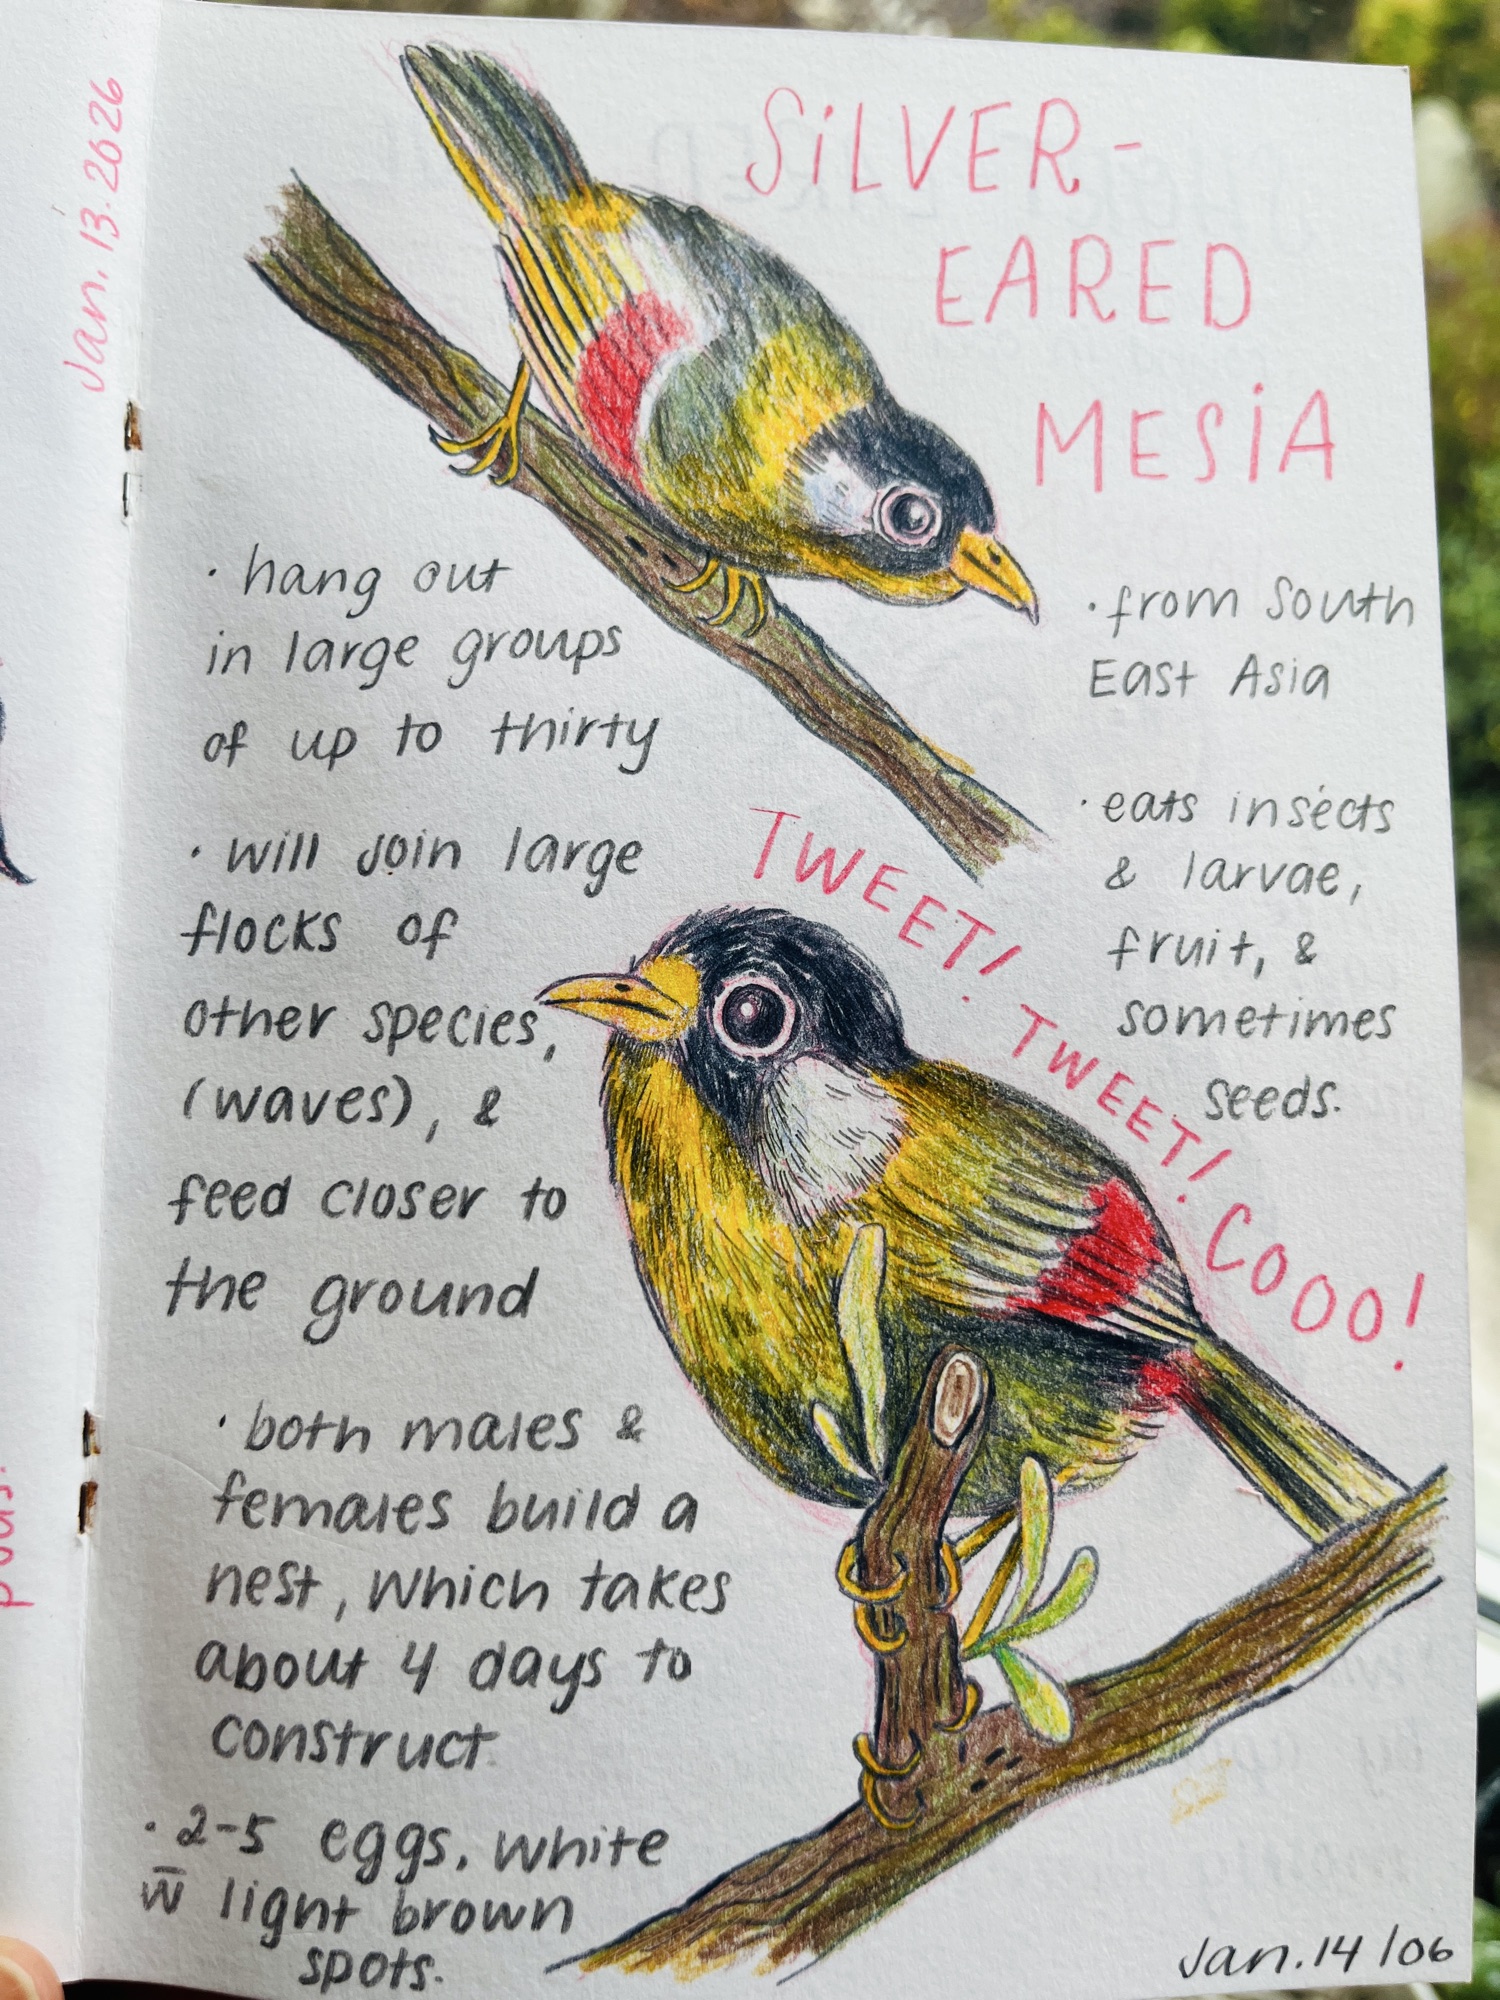 Jan. 13. 2026
SiLVER-
EARED
MESiA
· hang out
in large groups
of up to thirty
· will join large
flocks of
other species,
(waves), &
feed closer to
the ground
· both males &
females build a
nest, which takes
about 4 days to
construct.
· 2-5 eggs, white
w̅ light brown
spots.
· from South
East Asia
· eats insects
& larvae,
fruit, &
sometimes
seeds.
TWEET! TWEET! COOO!
Jan. 14 / 06